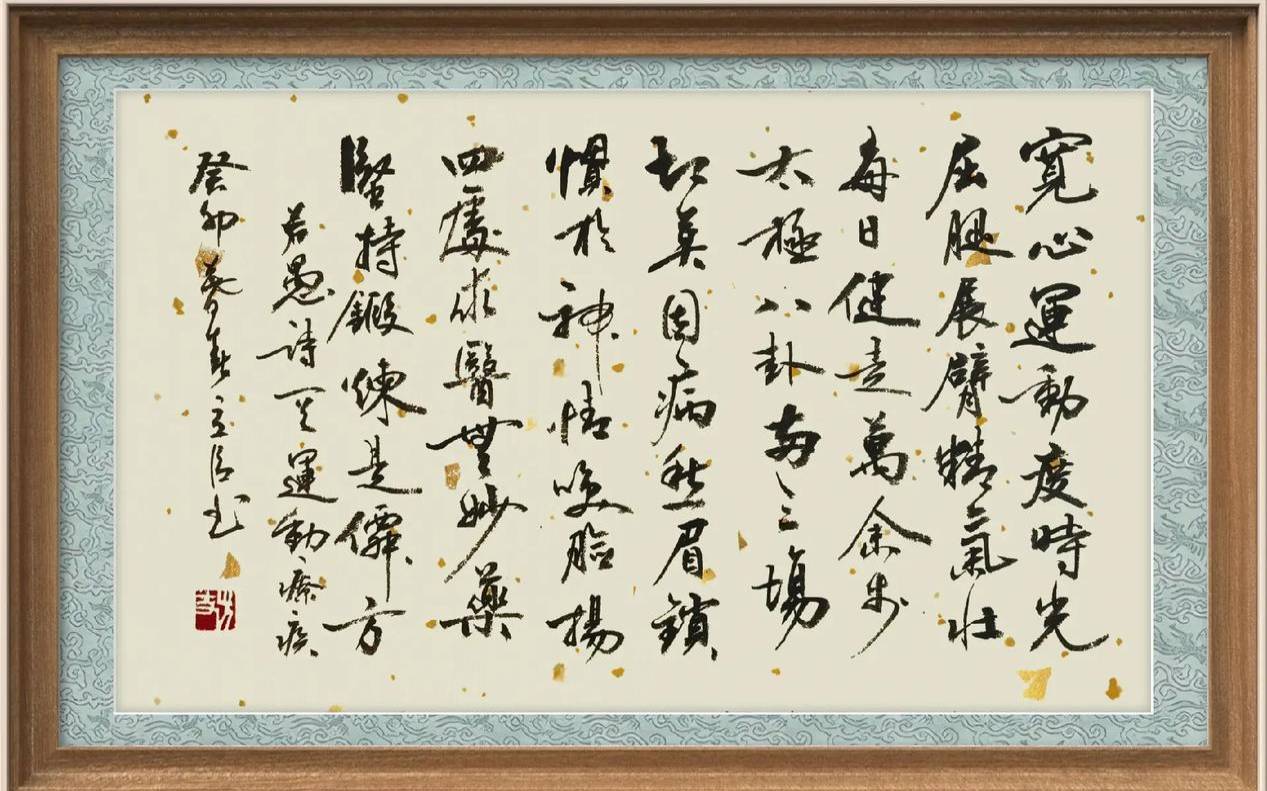 寬心運動度時光
屈腿展臂精氣壯
每日健走萬余步
太極八卦兩三場
切莫因病愁眉鎖
慣於神情喚臉揚
四處求醫無妙藥
堅持鍛煉是僊方
若愚詩一運動療疾
癸卯暮春立书